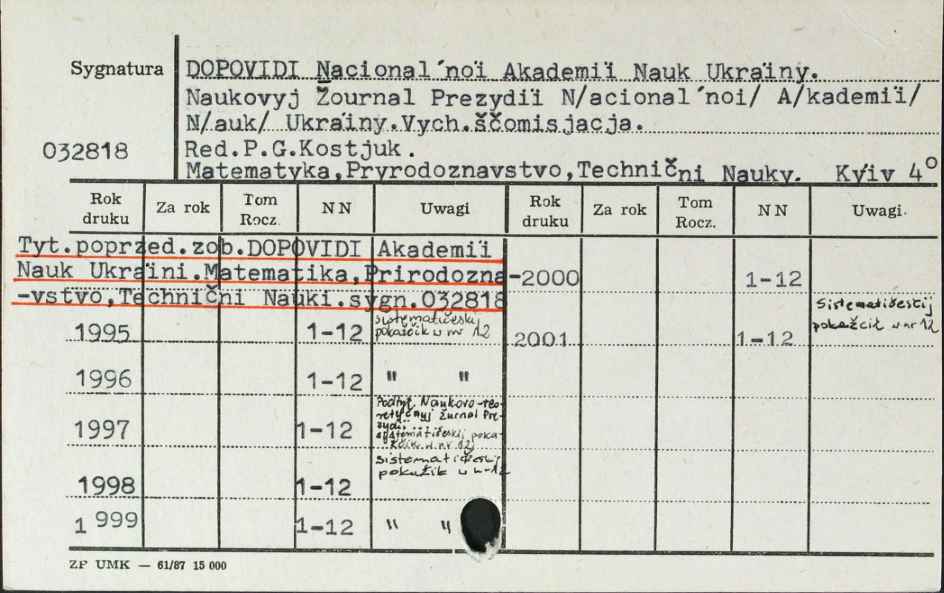 Sygnatura
DOPOVIDI Nacional´noï Akademiï Nauk Ukraïny.
Naukovyj Žournal Prezydiï N/acional´noi/ A/kademiï/
N/auk/ Ukraïny.Vych.ščomisjacja.
032818
Red.P.G.Kostjuk.
Matematyka,Pryrodoznavstvo,Technični Nauky. Kyïv 4°
Rok druku Za rok Tom Rocz. N N Uwagi Rok druku Za rok Tom Rocz. N N Uwagi.
Tyt.poprzed.zob.DOPOVIDI Akademiï
Nauk Ukraïni.Matematika,Prirodozna
-vstvo,Technični Nauki.sygn.032818
1995 1-12 sistematičeskij
pokaščik w nr 12
1996 1-12 " "
1997 1-12 Podtyt. Naukovo-teo-
retyčnyj žurnal Pre-
zydiï
systematičeskij poka-
w nr 12
1998 1-12 sistematičeskij
1999 1-12 " "
-2000 1-12
2001 1-12 Sistematičeskij
pokaščik w nr 12
ZP UMK — 61/87 15 000